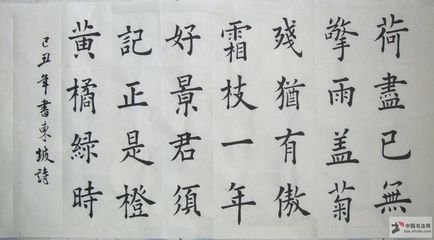 荷盡已無
擎雨盖菊
殘猶有傲
霜枝一年
好景君須
記正是橙
黃橘綠時
己丑年書東坡詩
中国书法网